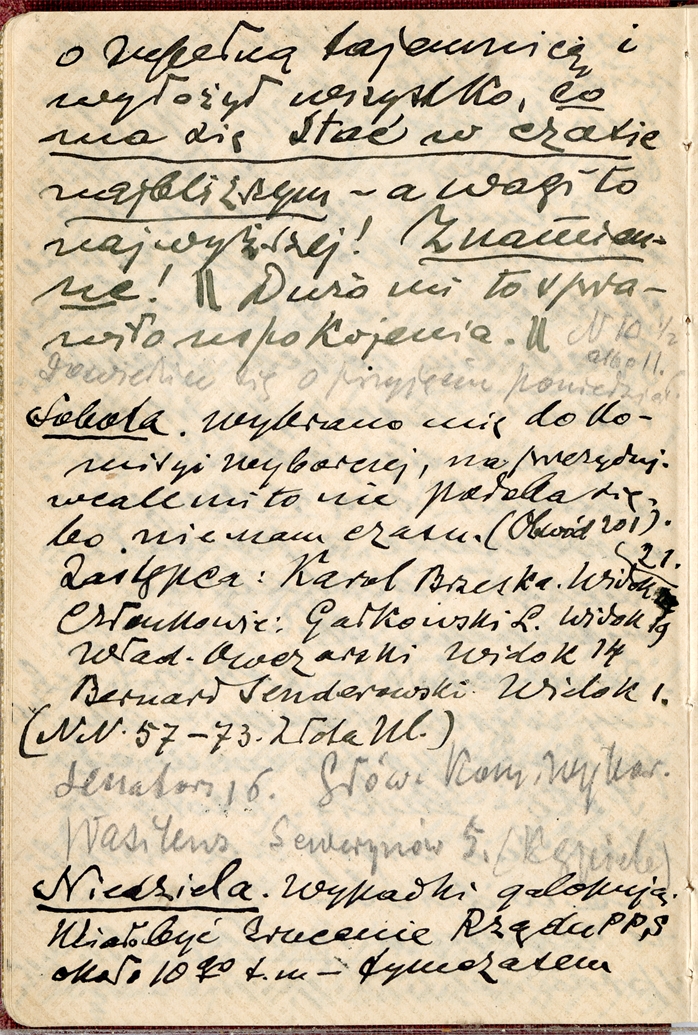 o zupełną tajemnicę i
wyłożył wszystko, co
ma się stać w czasie
najbliższym – a wagi to
najwyższej! Znamien-
ne! || Dużo mi to spra-
wiło uspokojenia. || N 10 1/2
albo 11.
się o przyjęciu poniedział.
Sobota. Wybrano mię do Ko-
misyi wyborczej, na prezyduj.
wcale mi to nie podoba się,
bo nie mam czasu. (Obwód 201).
Zastępca: Karol Brzeska. Widok 21.
Członkowie: Gałkowski L. Widok 19
Wład. Owczarski Widok 14
Bernard Senderowski Widok 1.
(N.N. 57–73. Złota Ul.)
Senators, 6. Głów. Kom. Wybor.
Sewerynów 5.
Niedziela. Wypadki galopują.
Miało być zrucenie Rządu PPS
około 10 20 t.m – tymczasem